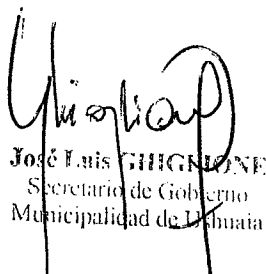 José Luis GHIGLIONE
Secretario de Gobierno
Municipalidad de Ushuaia